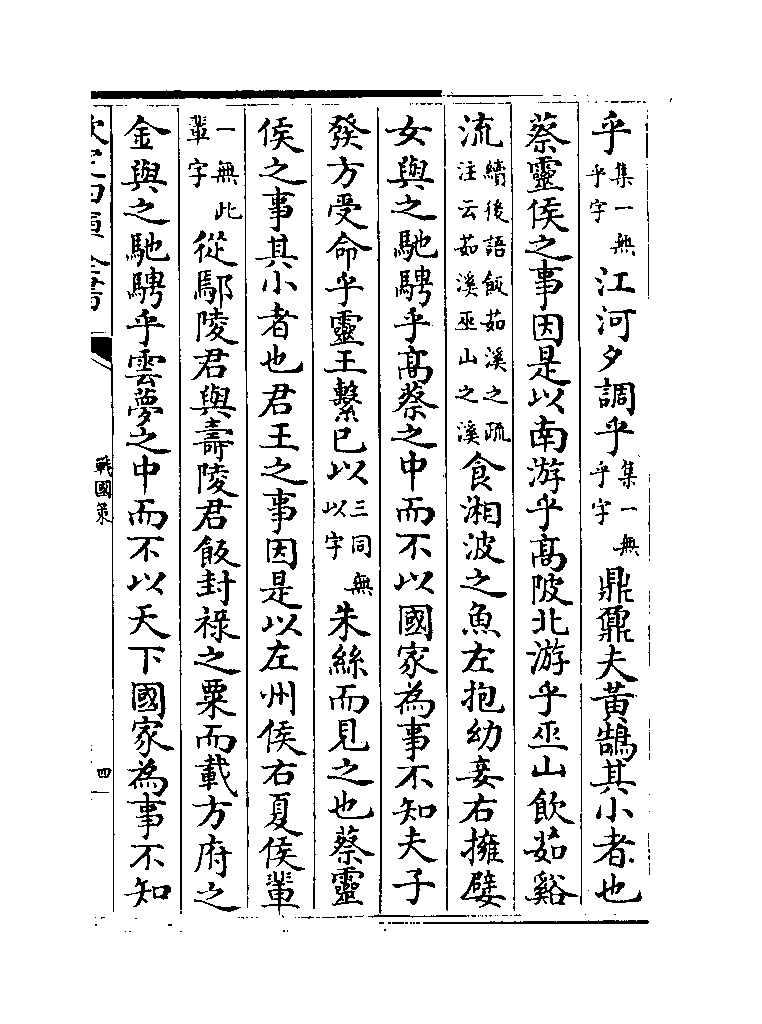 乎集一無乎字江河夕調乎集一無乎字鼎鼐夫黄鵠其小者也
蔡靈侯之事因是以南游乎高陂北游乎巫山飲茹谿
流續後語飯茹溪之疏注云茹溪巫山之溪食湘波之魚左抱幼妾右擁嬖
女與之馳騁乎髙蔡之中而不以國家為事不知夫子
發方受命乎靈王繫已以三同無以字朱絲而見之也蔡靈
侯之事其小者也君王之事因是以左州侯右夏侯輦
一無此輦字從鄢陵君與壽陵君飯封祿之粟而載方府之
金與之馳騁乎雲夢之中而不以天下國家為事不知
戰國策
四